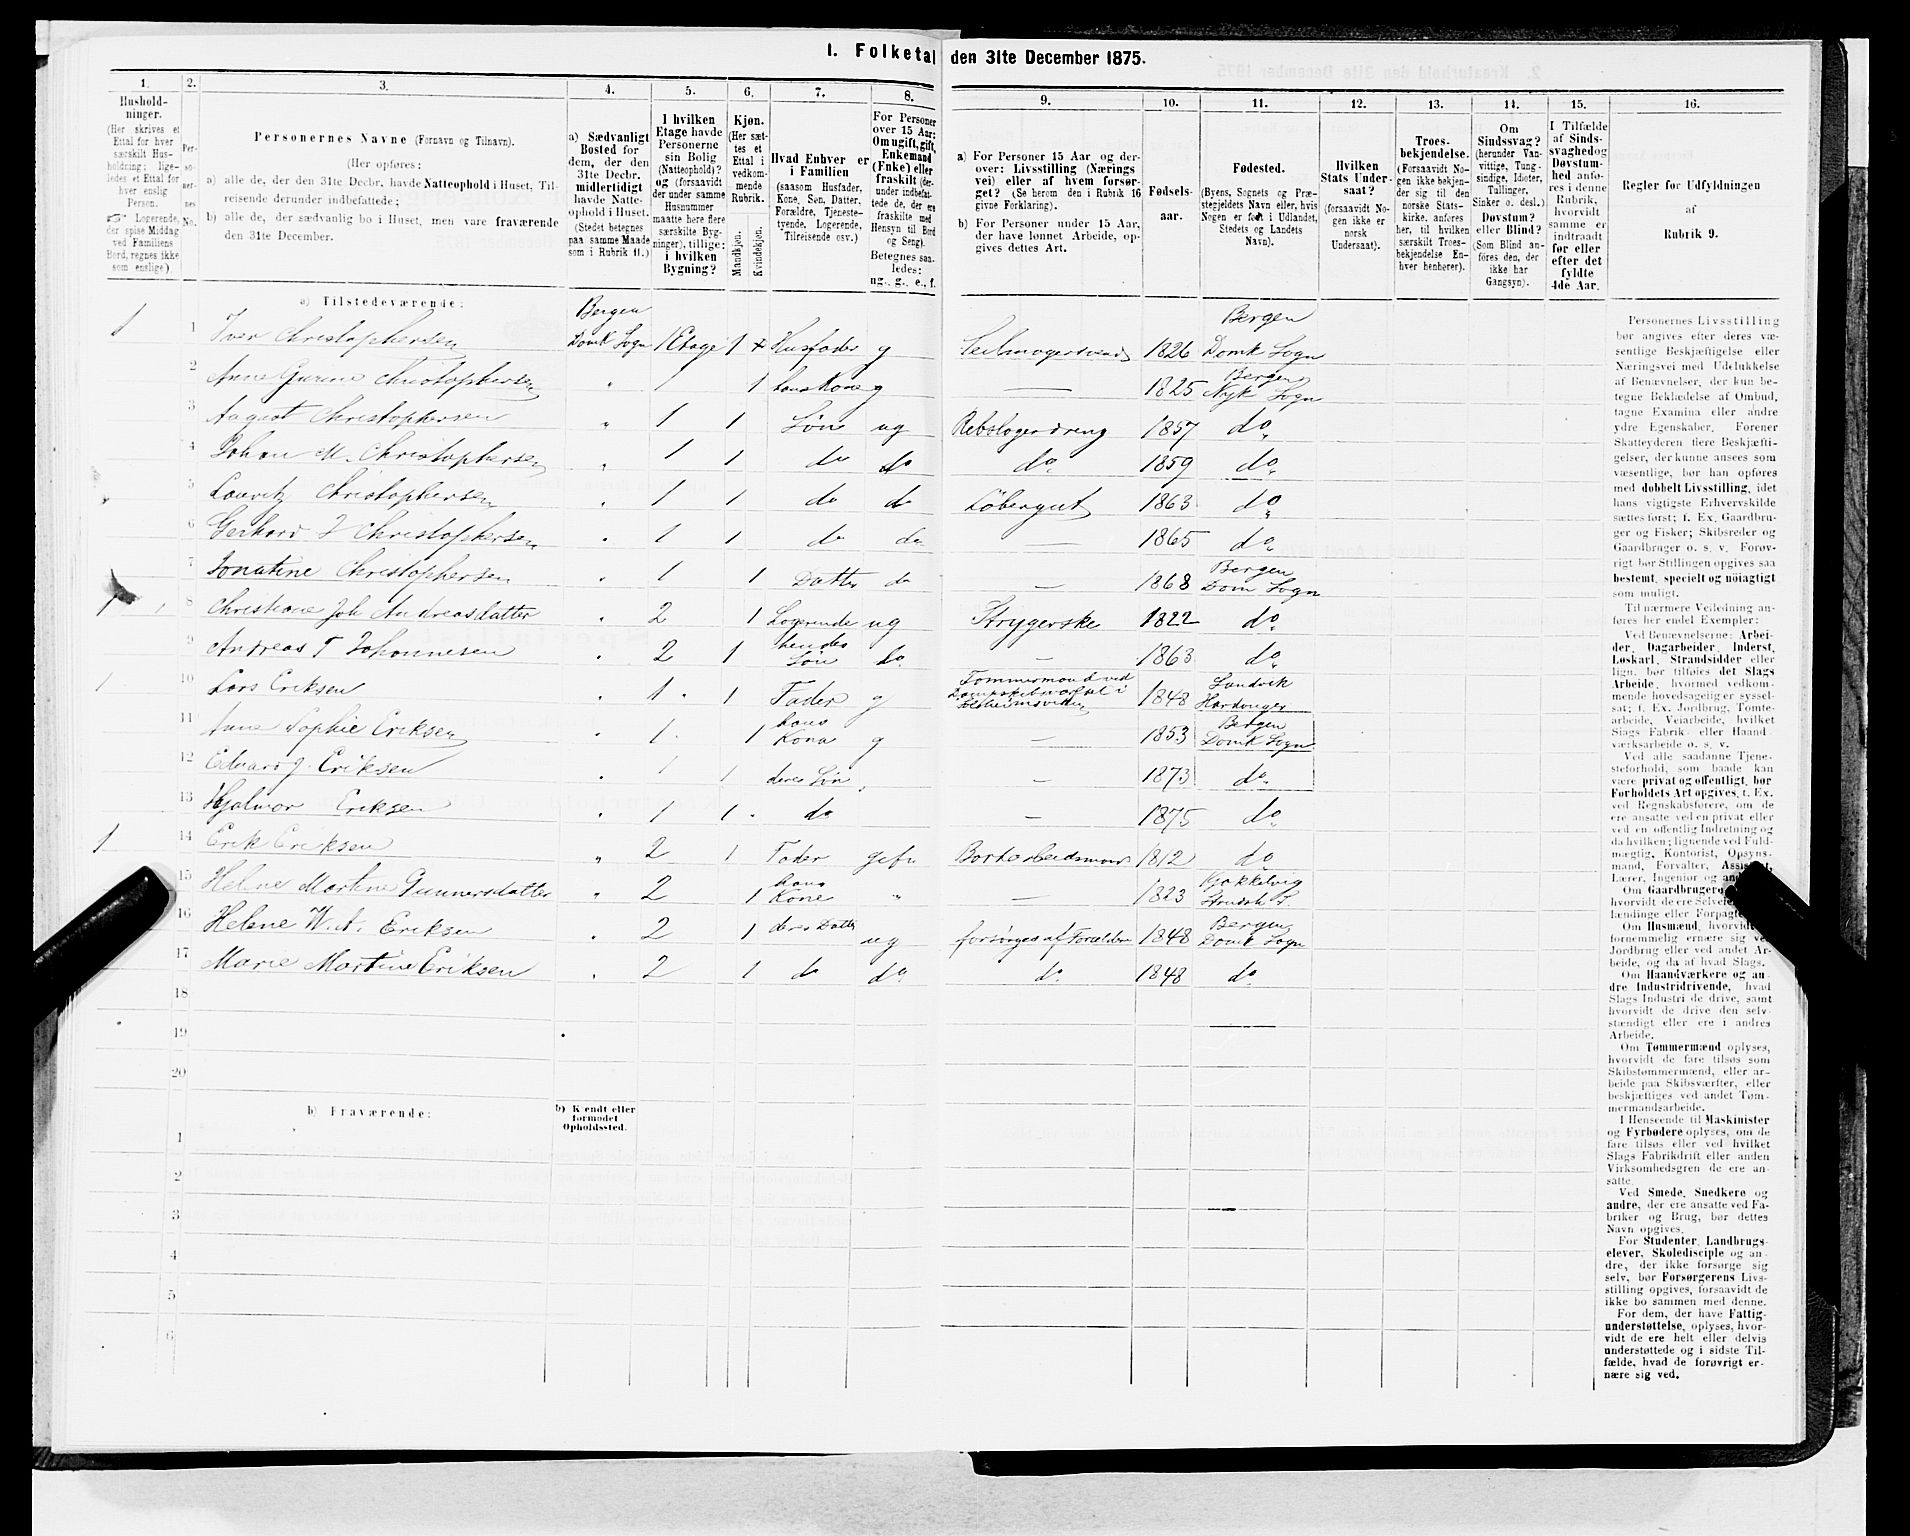 1. Folketal den 31te December 1875.
1. 2. 3. 4. 5. 6. 7. 8. 9. 10. 11. 12. 13. 14. 15. 16.
Hushold-
ninger.
(Her skrives et
Ettal for hver
særskilt Hus-
holdning; lige-
ledes et Ettal for
hver enslig
Person.
Logerende,
der spise Middag
ved Familiens
Bord, regnes ikke
som enslige)
Per-
so-
ner-
nes
No.
Personernes Navne (Fornavn og Tilnavn).
(Her opføres:
a) alle de, der den 31te Decbr. havde Natteophold i Huset, Til-
reisende derunder indbefattede;
b) alle de, der sædvanlig bo i Huset, men vare fraværende
den 31te December.
a) Sædvanligt
Bosted for
dem, der den
31te Decbr.
midlertidigt
havde Natte-
ophold i Huset.
(Stedet betegnes
paa samme Maade
som i Rubrik 11.)
I hvilken
Etage havde
Personerne
sin Bolig
(Natteophold)?
og (forsaavidt
der under samme
Husnummer
maatte høre flere
særskilte Byg-
ninger), tillige:
i hvilken
Bygning?
Kjøn.
(Her sæt-
tes et
Ettal i
vedkom-
mende
Rubrik.
Mandkjøn.
Kvindekjøn.
Hvad Enhver er
i Familien
(saasom Husfader,
Kone, Søn, Datter,
Forældre, Tjeneste-
tyende, Logerende,
Tilreisende osv.)
For Personer
over 15 Aar:
Om ugift, gift,
Enkemand
(Enke) eller
fraskilt (der-
under indbefat-
tede de, der ere
fraskilte med
Hensyn til Bord
og Seng).
Betegnes saa-
ledes:
ug., g., e., f.
a) For Personer 15 Aar og der-
over: Livsstilling (Nærings
vei) eller af hvem forsør-
get? (Se herom den i Rubrik 16
givne Forklaring).
b) For Personer under 15 Aar,
der have lønnet Arbeide, op-
gives dettes Art.
Fødsels-
aar.
Fødested.
(Byens, Sognets og Præ-
stegjeldets Navn eller, hvis
Nogen er født i Udlandet,
Stedets og Landets
Navn).
Hvilken
Stats Under-
saat?
(forsaavidt No-
gen ikke er
norsk
Undersaat).
Troes-
bekjendelse.
(Forsaavidt No-
gen ikke bekjen-
der sig til den
norske Stats-
kirke, anføres
her, til hvilken
særskilt Troes-
bekjendelse En-
hver henhører).
Om
Sindssvag?
(herunder Van-
vittige, Tung-
sindige, Idioter,
Tullinger,
Sinker o. desl.)
Døvstum?
eller Blind?
(Som Blind an-
føres den, der
ikke har
Gangsyn).
I Tilfælde
af Sinds-
svaghed og
Døvstum-
hed anfø-
res i denne
Rubrik,
hvorvidt
samme er
indtraadt
før eller
efter det
fyldte
4de Aar.
Regler for Udfyldningen
af
Rubrik 9.
a) Tilstedeværende:
1 1 Iver Christophersen Bergen Domk Sogn 1 Etage 1 Husfader g Seilmagersvend 1826 Bergen Domk Sogn
2 Anne Gurine Christophersen " 1 1 hans Kone g — 1825 Bergen Nyk Sogn
3 August Christophersen " 1 1 Søn ug Rebslagerdreng 1857 do
4 Johan M. Christophersen " 1 1 do do do 1859 do
5 Lauritz Christophersen " 1 1 do do Løbergut 1863 do
6 Gerhard J Christophersen " 1 1 do do — 1865 do
7 Jonatine Christophersen " 1 1 Datter do — 1868 Bergen Dom Sogn
1 8 Christiane Joh Andreasdatter " 2 1 Logerende ug Strygerske 1822 do
9 Andreas T Johannesen " 2 1 hendes Søn do — 1863 do
1 10 Lars Eriksen " 1 1 Fader g Tømmermand ved 1848 Hardanger
11 Anne Sophie Eriksen " 1 1 hans Kona g — 1853 Bergen Domk Sogn
12 Edvard J. Eriksen " 1 1 deres Søn — 1873 do
13 Hjalmar Eriksen " 1 1 do — 1875 do
1 14 Erik Eriksen " 2 1 Fader gift 1812 do
15 Helene Martine Gunnersdatter " 2 1 hans Kone " — 1823
16 Helene W. A. Eriksen " 2 1 deres Datter ug forsørges af Forældrene 1848 Bergen Domk Sogn
17 Marie Martine Eriksen " 2 1 do do do 1848 do
18
19
20
b) Fraværende:
b) Kjendt eller
formodet
Opholdssted.
1
2
3
4
5
6
Personernes Livsstilling
bør angives efter deres væ-
sentlige Beskjæftigelse eller
Næringsvei med Udelukkelse
af Benævnelser, der kun be-
tegne Beklædelse af Ombud,
tagne Examina eller andre
ydre Egenskaber. Forener
Skatteyderen flere Beskjæfti-
gelser, der kunne ansees som
væsentlige, bør han opføres
med dobbelt Livsstilling, idet
hans vigtigste Erhvervskilde
sættes først; f. Ex. Gaardbru-
ger og Fisker; Skibsreder og
Gaardbruger o. s. v. Forøv-
rigt bør Stillingen opgives saa
bestemt, specielt og nøiagtigt
som muligt.
Til nærmere Veiledning an-
føres her endel Exempler:
Ved Benævnelserne: Arbei-
der, Dagarbeider, Inderst,
Løskarl, Strandsidder eller
lign. bør tilføies det Slags
Arbeide, hvormed vedkom-
mende hovedsagelig er syssel-
sat; f. Ex. Jordbrug, Tomte-
arbeide, Veiarbeide, hvilket
Slags Fabrik- eller Haand-
værksarbeide o. s. v.
Ved alle saadanne Tjene-
steforhold, som baade kan
være privat og offentligt, bør
Forholdets Art opgives, f. Ex.
ved Regnskabsførere, om de
ere ansatte ved en privat eller
ved en offentlig Indretning og
da hvilken; lignende ved Fuld-
mægtig, Kontorist, Opsyns-
mand, Forvalter, Assistent,
Lærer, Ingeniør og andre.
Om Gaardbrugere
hvorvidt de ere
Lændinge eller
Om Husmænd, hvorvidt
fornemmelig ernære sig ved
Jordbrug eller ved andet Ar-
beide, og da af hvad Slags.
Om Haandværkere og an-
dre Industridrivende, hvad
Slags Industri de drive, samt
hvorvidt de drive den selv-
stændigt eller ere i andres
Arbeide.
Om Tømmermænd oplyses,
hvorvidt de fare tilsøs som
Skibstømmermænd, eller ar-
beide paa Skibsværfter, eller
beskjæftiges ved andet Tøm-
mermandsarbeide.
I Henseende til Maskinister
og Fyrbødere oplyses, om de
fare tilsøs eller ved hvilket
Slags Fabrikdrift eller anden
Virksomhedsgren de ere an-
satte.
Ved Smede, Snedkere og
andre, der ere ansatte ved Fa-
briker og Brug, bør dettes
Navn opgives.
For Studenter, Landbrugs-
elever, Skoledisciple og an-
dre, der ikke forsørge sig
selv, bør Forsørgerens Livs-
stilling opgives, forsaavidt de
ikke bo sammen med denne.
For dem, der have Fattig-
understøttelse, oplyses, hvor-
vidt de ere helt eller delvis
understøttede og i sidste Til-
fælde, hvad de forøvrigt er-
nære sig ved.